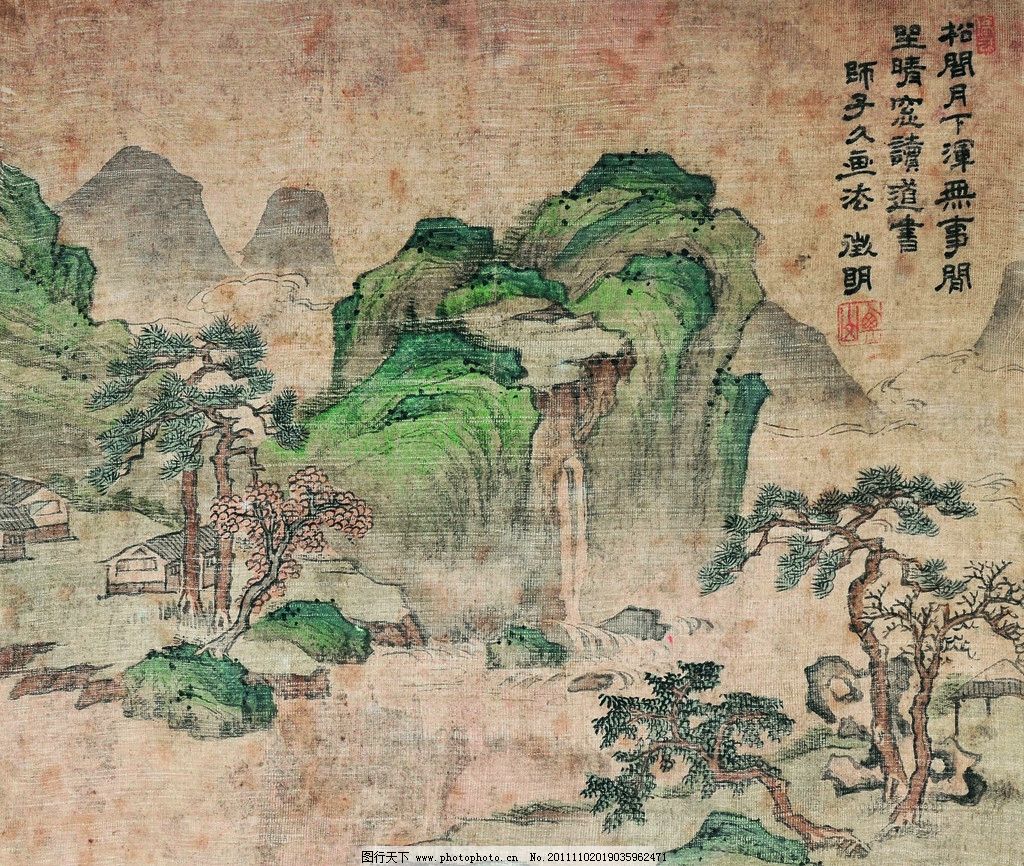 松間月下渾無事閒
坐晴窓讀道書
師子久画法 徵明
图行天下 www.photophoto.cn No.20111102019035962471